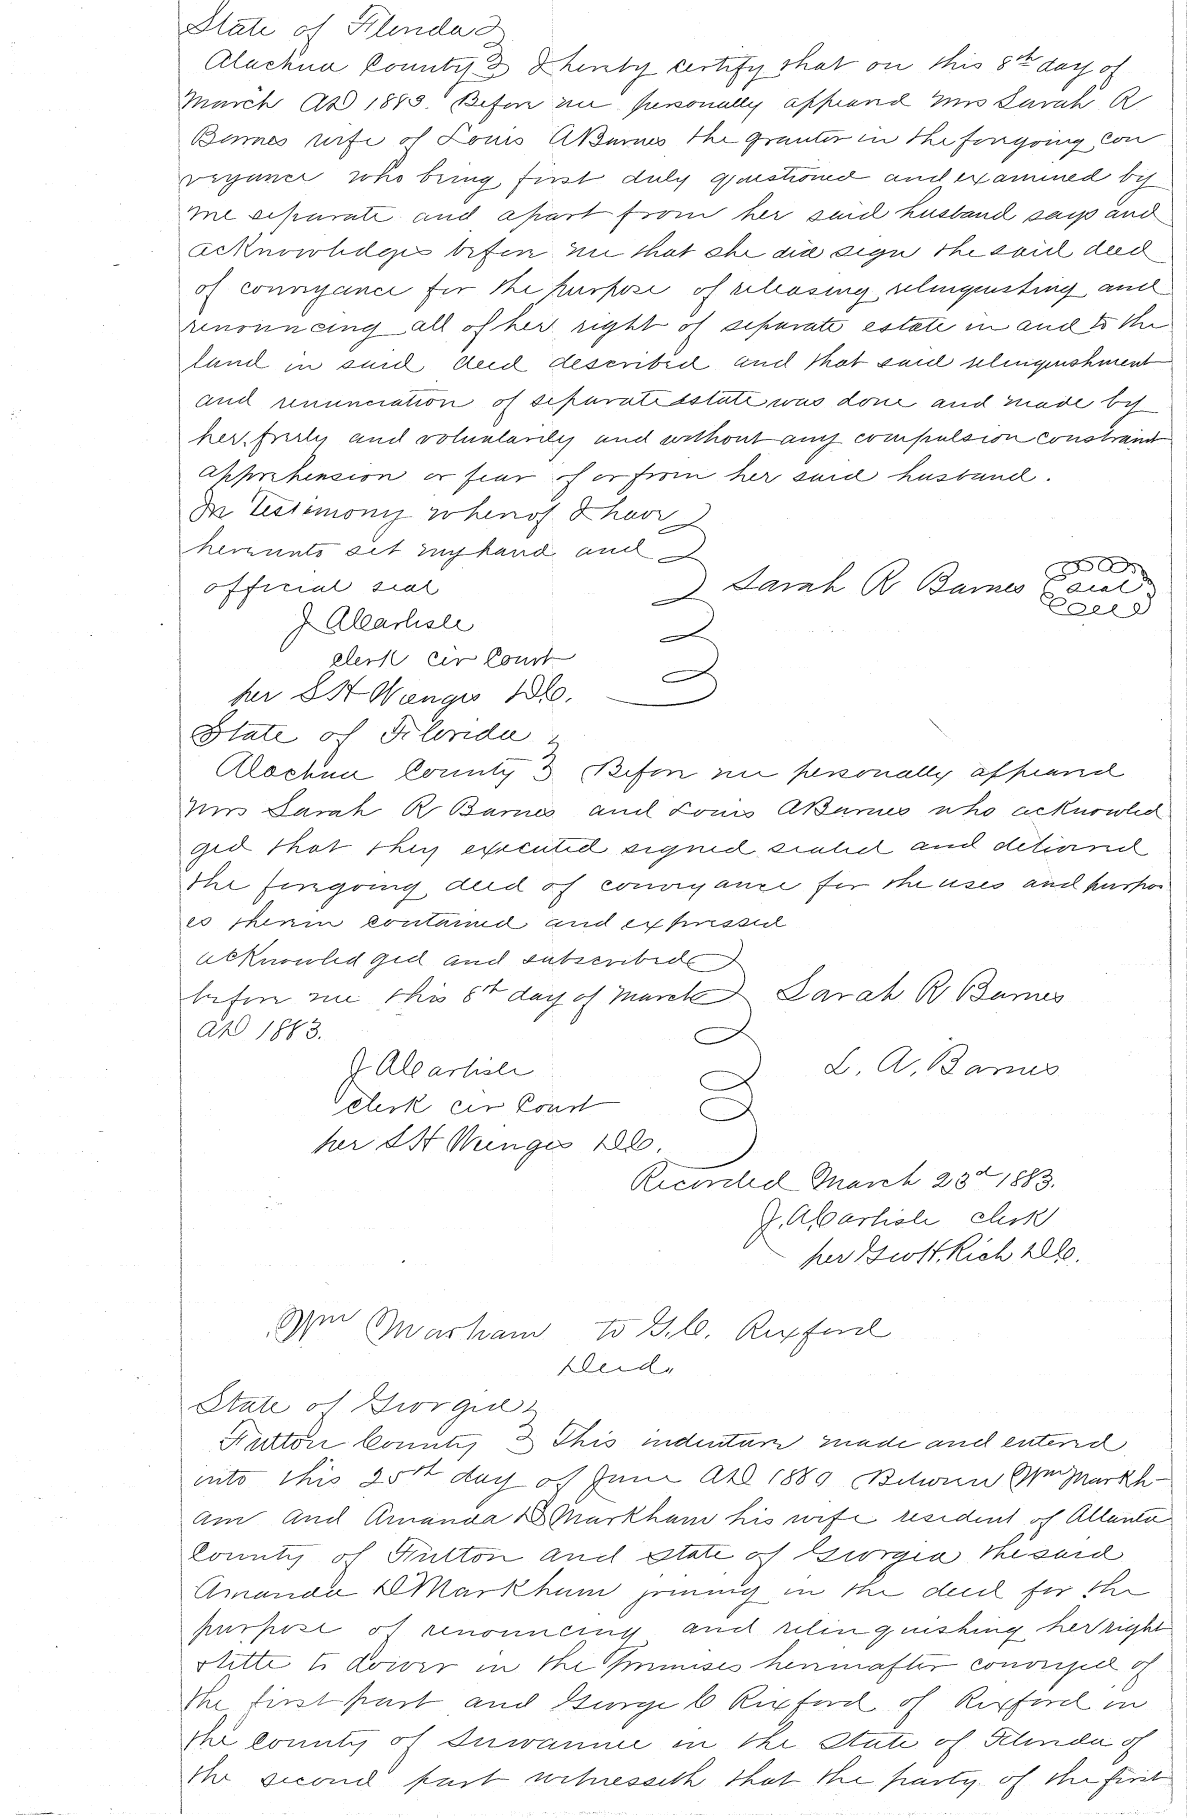 State of Florida
Alachua County I hereby certify that on this 8th day of
March AD 1883. Before me personally appeared Mrs Sarah R
Barnes wife of Louis A Barnes the grantor in the foregoing con
veyance who being first duly questioned and examined by
me separate and apart from her said husband says and
acknowledges before me that she did sign the said deed
of conveyance for the purpose of releasing relinquisting and
renouncing all of her right of separate estate in and to the
land in said deed described and that said relinquishment
and renunciation of separate estate was done and made by
her freely and voluntarily and without any compulsion constraint
apprehension or fear of or from her said husband.
In Testimony whereof I have
hereunto set my hand and
official seal
Sarah R Barnes Seal
J A Carlisle
clerk cir Court
per S H Wienges D.C.
State of Florida
Alachua County Before me personally appeared
Mrs Sarah R Barnes and Louis A Barnes who acknowled
ged that they executed signed sealed and delivered
the foregoing deed of conveyance for the uses and purpos
es therein contained and expressed
acknowledged and subscribed
before me this 8th day of March Sarah R Barnes
AD 1883.
J A Carlisle L. A. Barnes
Clerk cir Court
per S H Wienges D.C.
Recorded March 23d 1883.
J. A Carlisle clerk
per Geo H. Rich D.C.
Wm Marham to G. C. Rixford
Deed.
State of Georgia
Fulton County This indenture made and entered
into this 25th day of June AD 1880 Between Wm Markh-
am and Amanda D Markham his wife resident of Atlanta
County of Fulton and state of Georgia the said
Amanda D Markham joining in the deed for the
purpose of renouncing and relinquishing her right
title to dower in the premises hereinafter conveyed of
the first part and George C Rixford of Rixford in
the county of Suwannee in the State of Florida of
the second part witnesseth that the party of the first